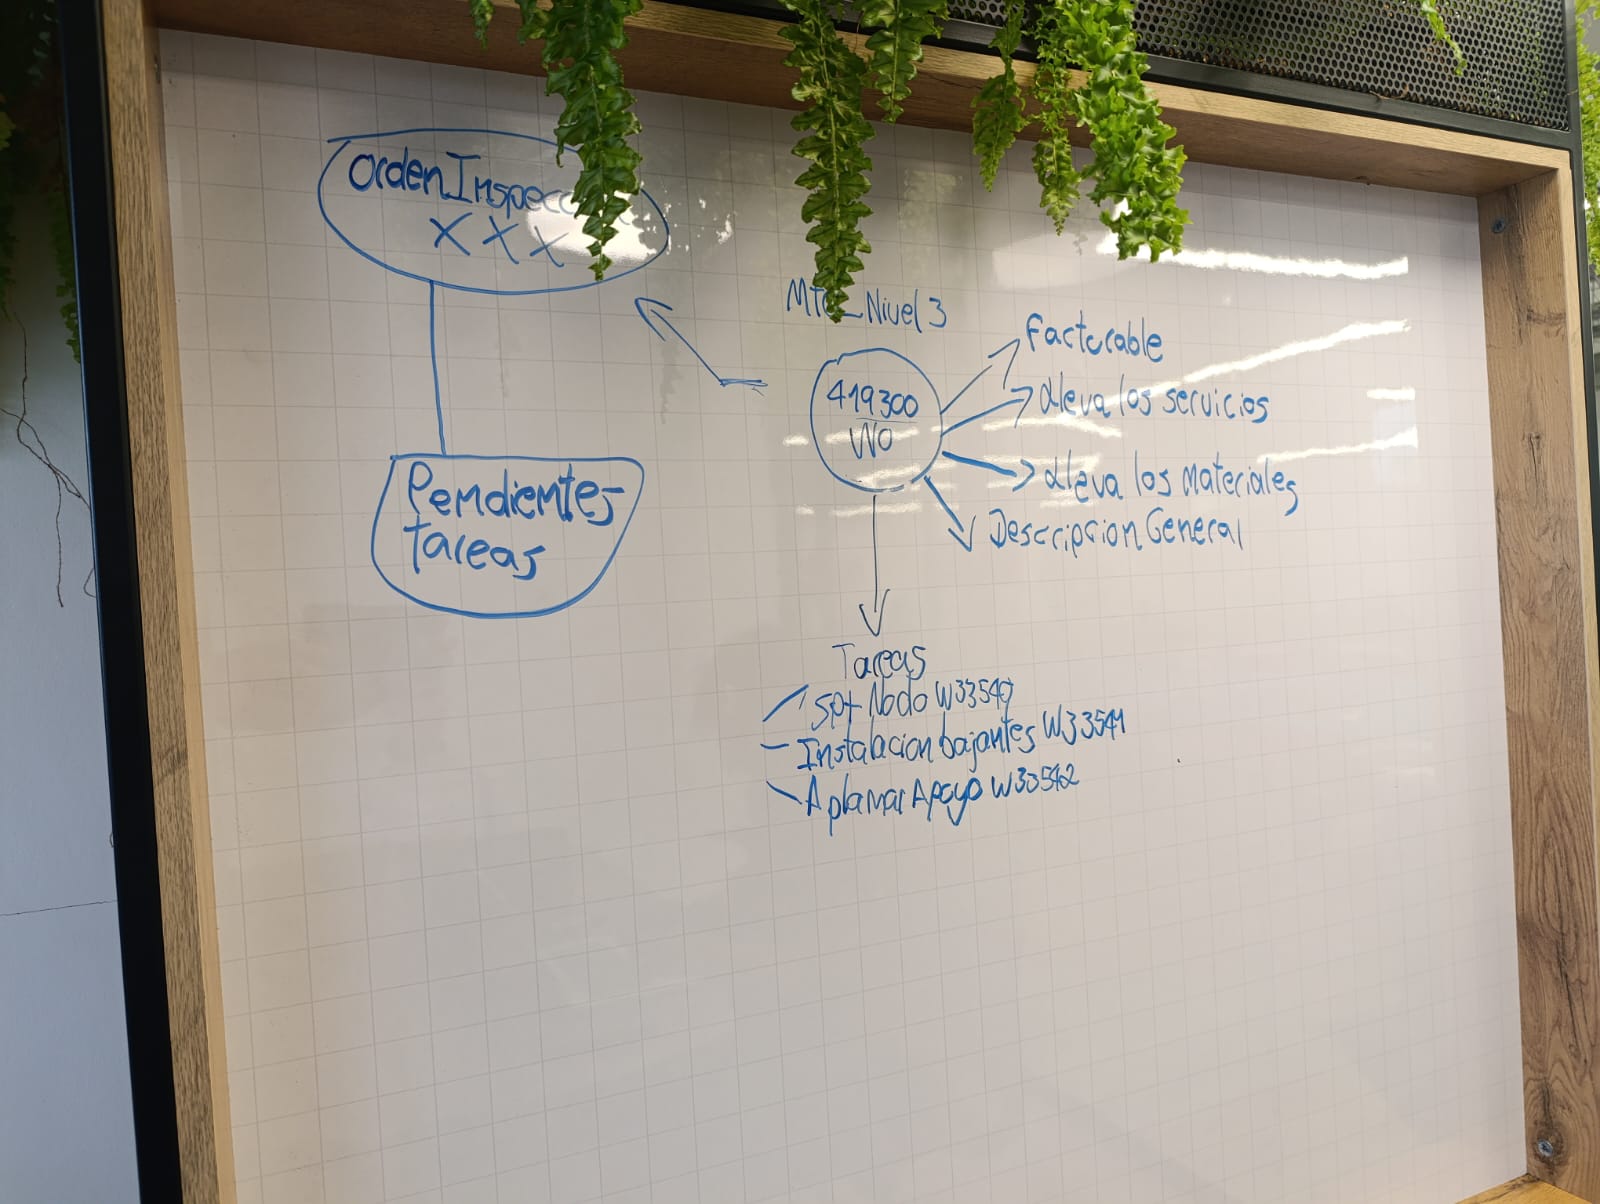 XXX
Pendientes
tareas
Nivel 3
419300
WO
Facturable
lleva los servicios
lleva los Materiales
Descripcion General
Tareas
Spt Nodo W33540
Instalacion bajantes W33541
Aplamar Apoyo W33542